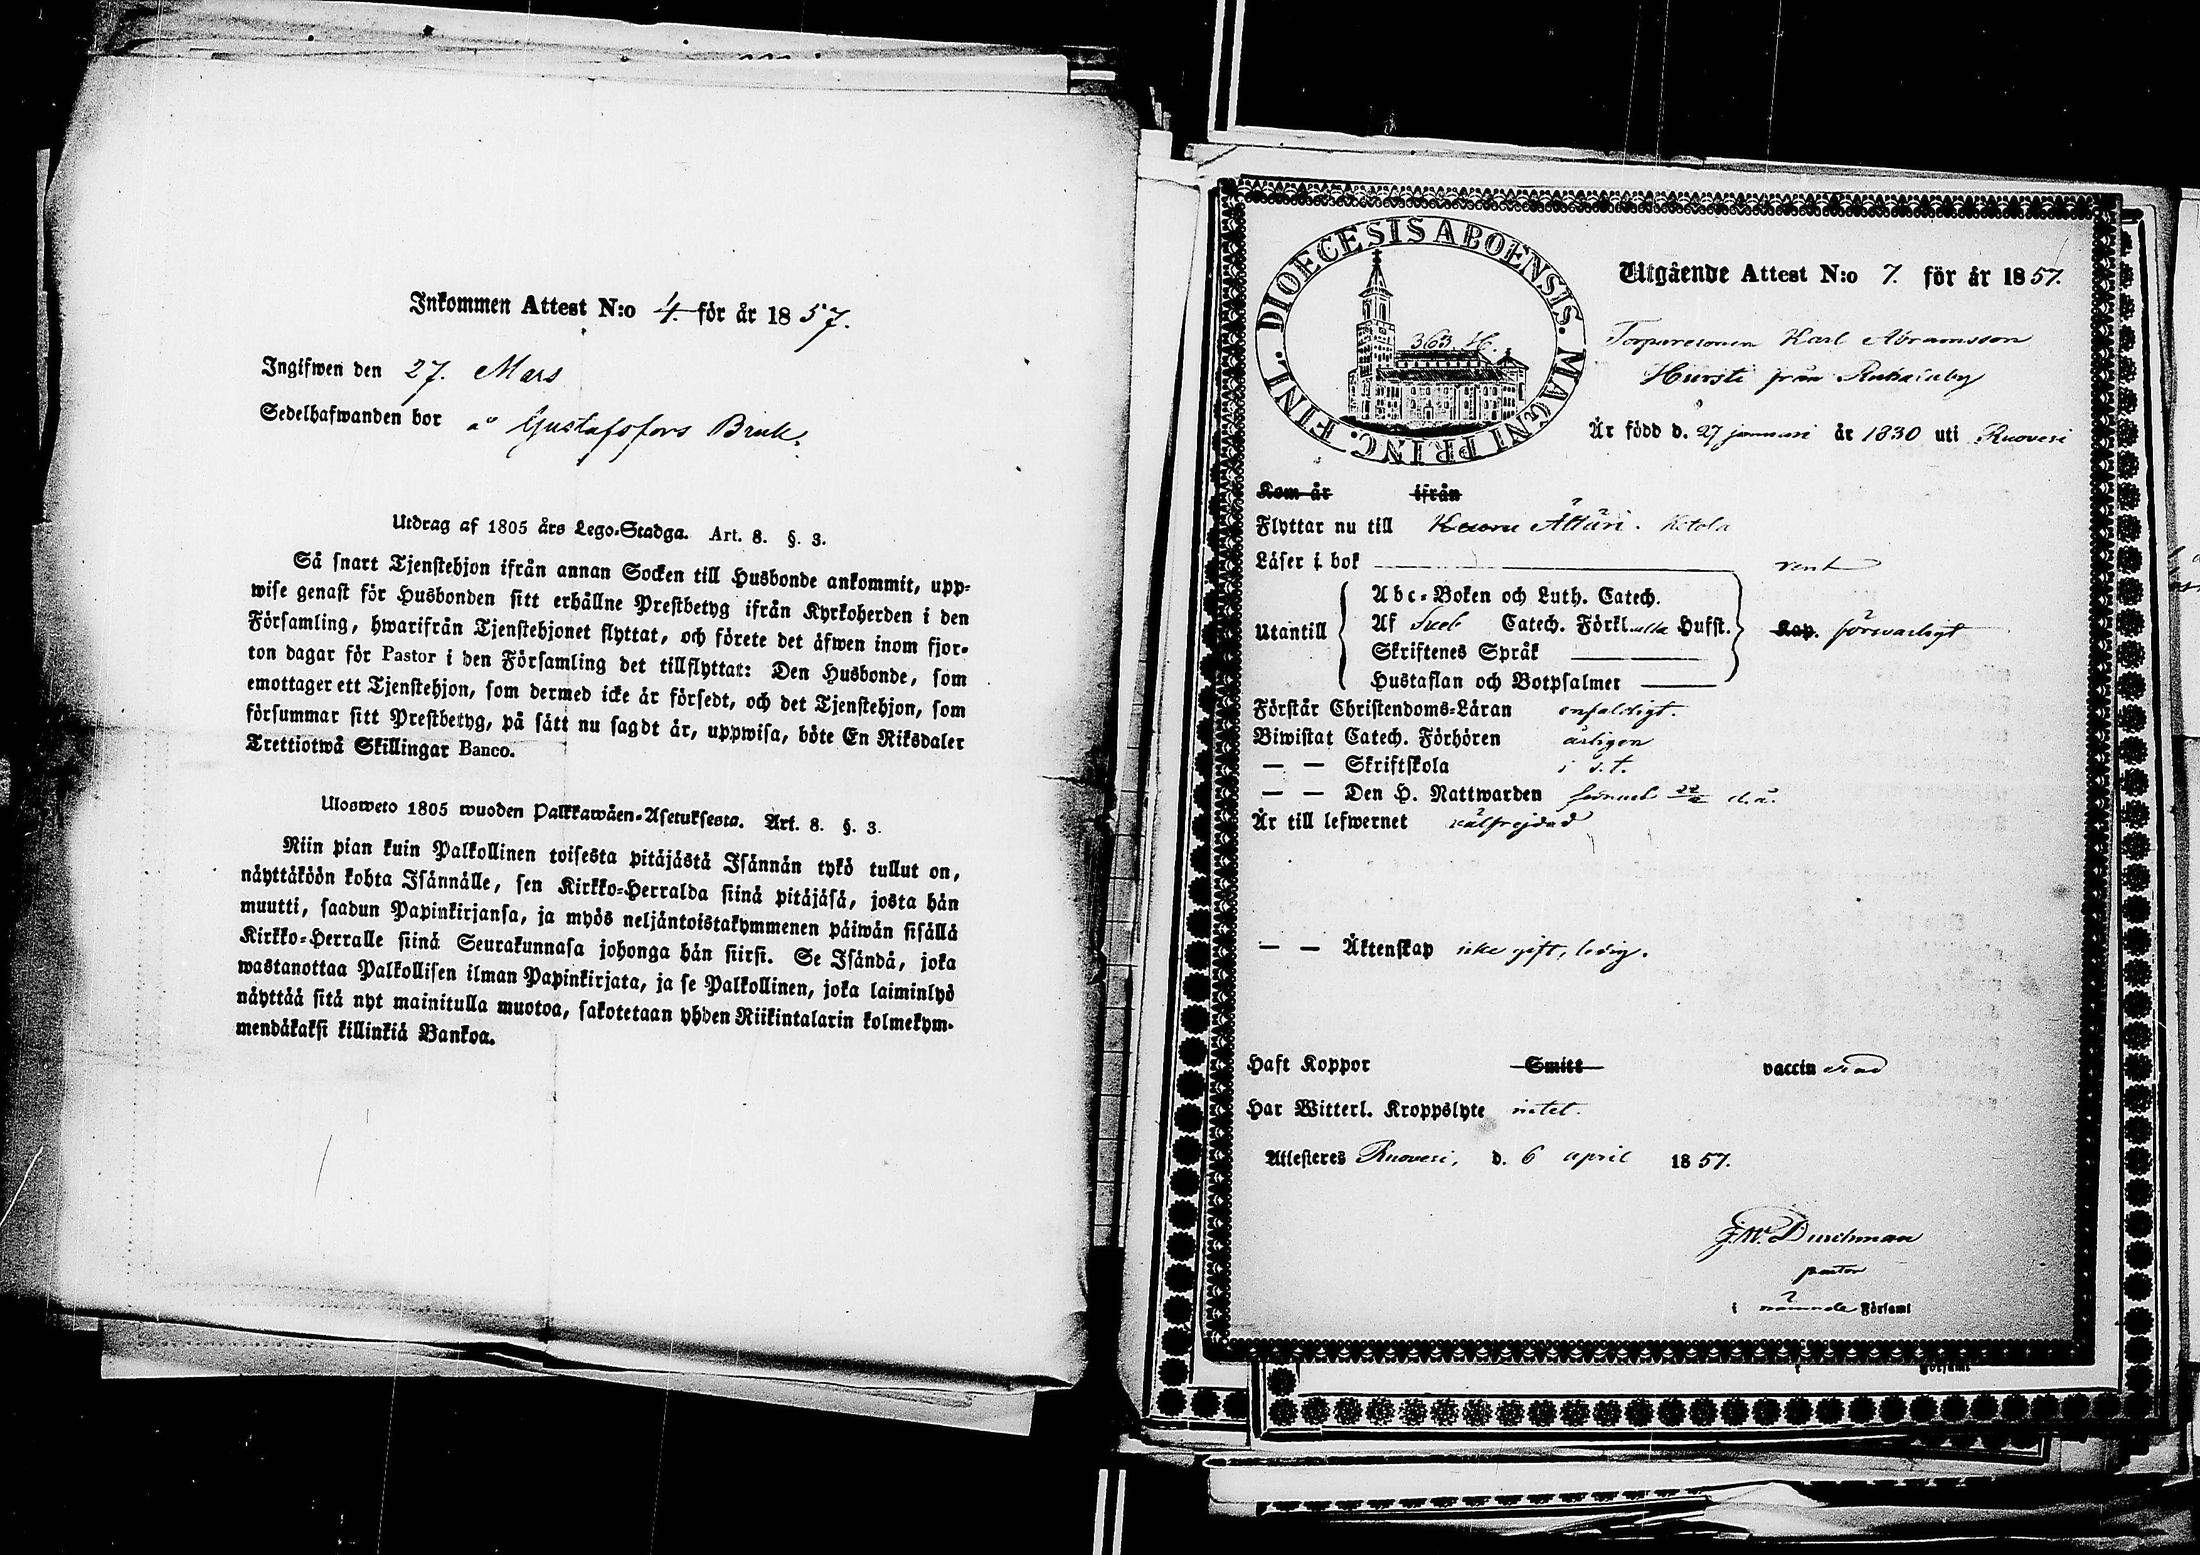 Inkommen Attest N:o 4. för år 1857.
Ingifwen den 27. Mars
Sedelhafwanden bor å Gustafsfors Bruk.
Utdrag af 1805 års Lego-Stadga. Art. 8. §. 3.
Så snart Tjenstehjon ifrån annan Socken till Husbonde ankommit, upp-
wise genast för Husbonden sitt erhållne Prestbetyg ifrån Kyrkoherden i den
Församling, hwarifrån Tjenstehjonet flyttat, och förete det äfwen inom fjor-
ton dagar för Pastor i den Församling det tillflyttat: Den Husbonde, som
emottager ett Tjenstehjon, som dermed icke är försedt, och det Tjenstehjon, som
försummar sitt Prestbetyg, på sätt nu sagdt är, uppwisa, böte En Riksdaler
Trettiotwå Skillingar Banco.
Ulosweto 1805 wuoden Palkkawäen-Asetuksesta. Art. 8. §. 3.
Niin pian kuin Palkollinen toisesta pitäjästä Isännän tykö tullut on,
näyttäköön kohta Isännälle, sen Kirkko-Herralda siinä pitäjäsä, josta hän
muutti, saadun Papinkirjansa, ja myös neljäntoistakymmenen päiwän sisällä
Kirkko-Herralle siinä Seurakunnasa johonga hän siirsi. Se Isändä, joka
wastanottaa Palkollisen ilman Papinkirjata, ja se Palkollinen, joka laiminlyö
näyttää sitä nyt mainitulla muotoa, sakotetaan yhden Riikintalarin kolmekym-
mendäkaksi killinkiä Bankoa.
DIOECESIS ABOENSIS. MAGNI PRINC. FINL.
363. H.
Utgående Attest N:o 7. för år 1857.
Torparesonen Karl Abramsson
Hursti från Ruhalaby
Är född d. 27 januari år 1830 uti Ruovesi
Kom år ifrån
Flyttar nu till Ätläri. Ketola
Läser i bok rent
Utantill
Abc-Boken och Luth. Catech.
Af Sveb Catech. Förkl. alla Hufst. Kap. förswarligt
Skriftenes Språk
Hustaflan och Botpsalmer
Förstår Christendoms-Läran enfaldigt.
Biwistat Catech. Förhören årligen
— — Skriftskola i s.t.
— — Den H. Nattwarden d.å.
Är till lefwernet välfrejdad
— — Äktenskap icke gift, ledig.
Haft Koppor Smitt vaccinerad
Har Witterl. Kroppslyte intet.
Attesteres Ruovesi, d. 6 april 1857.
F.W. Durchman
pastor
i nämnde Församl
Församl